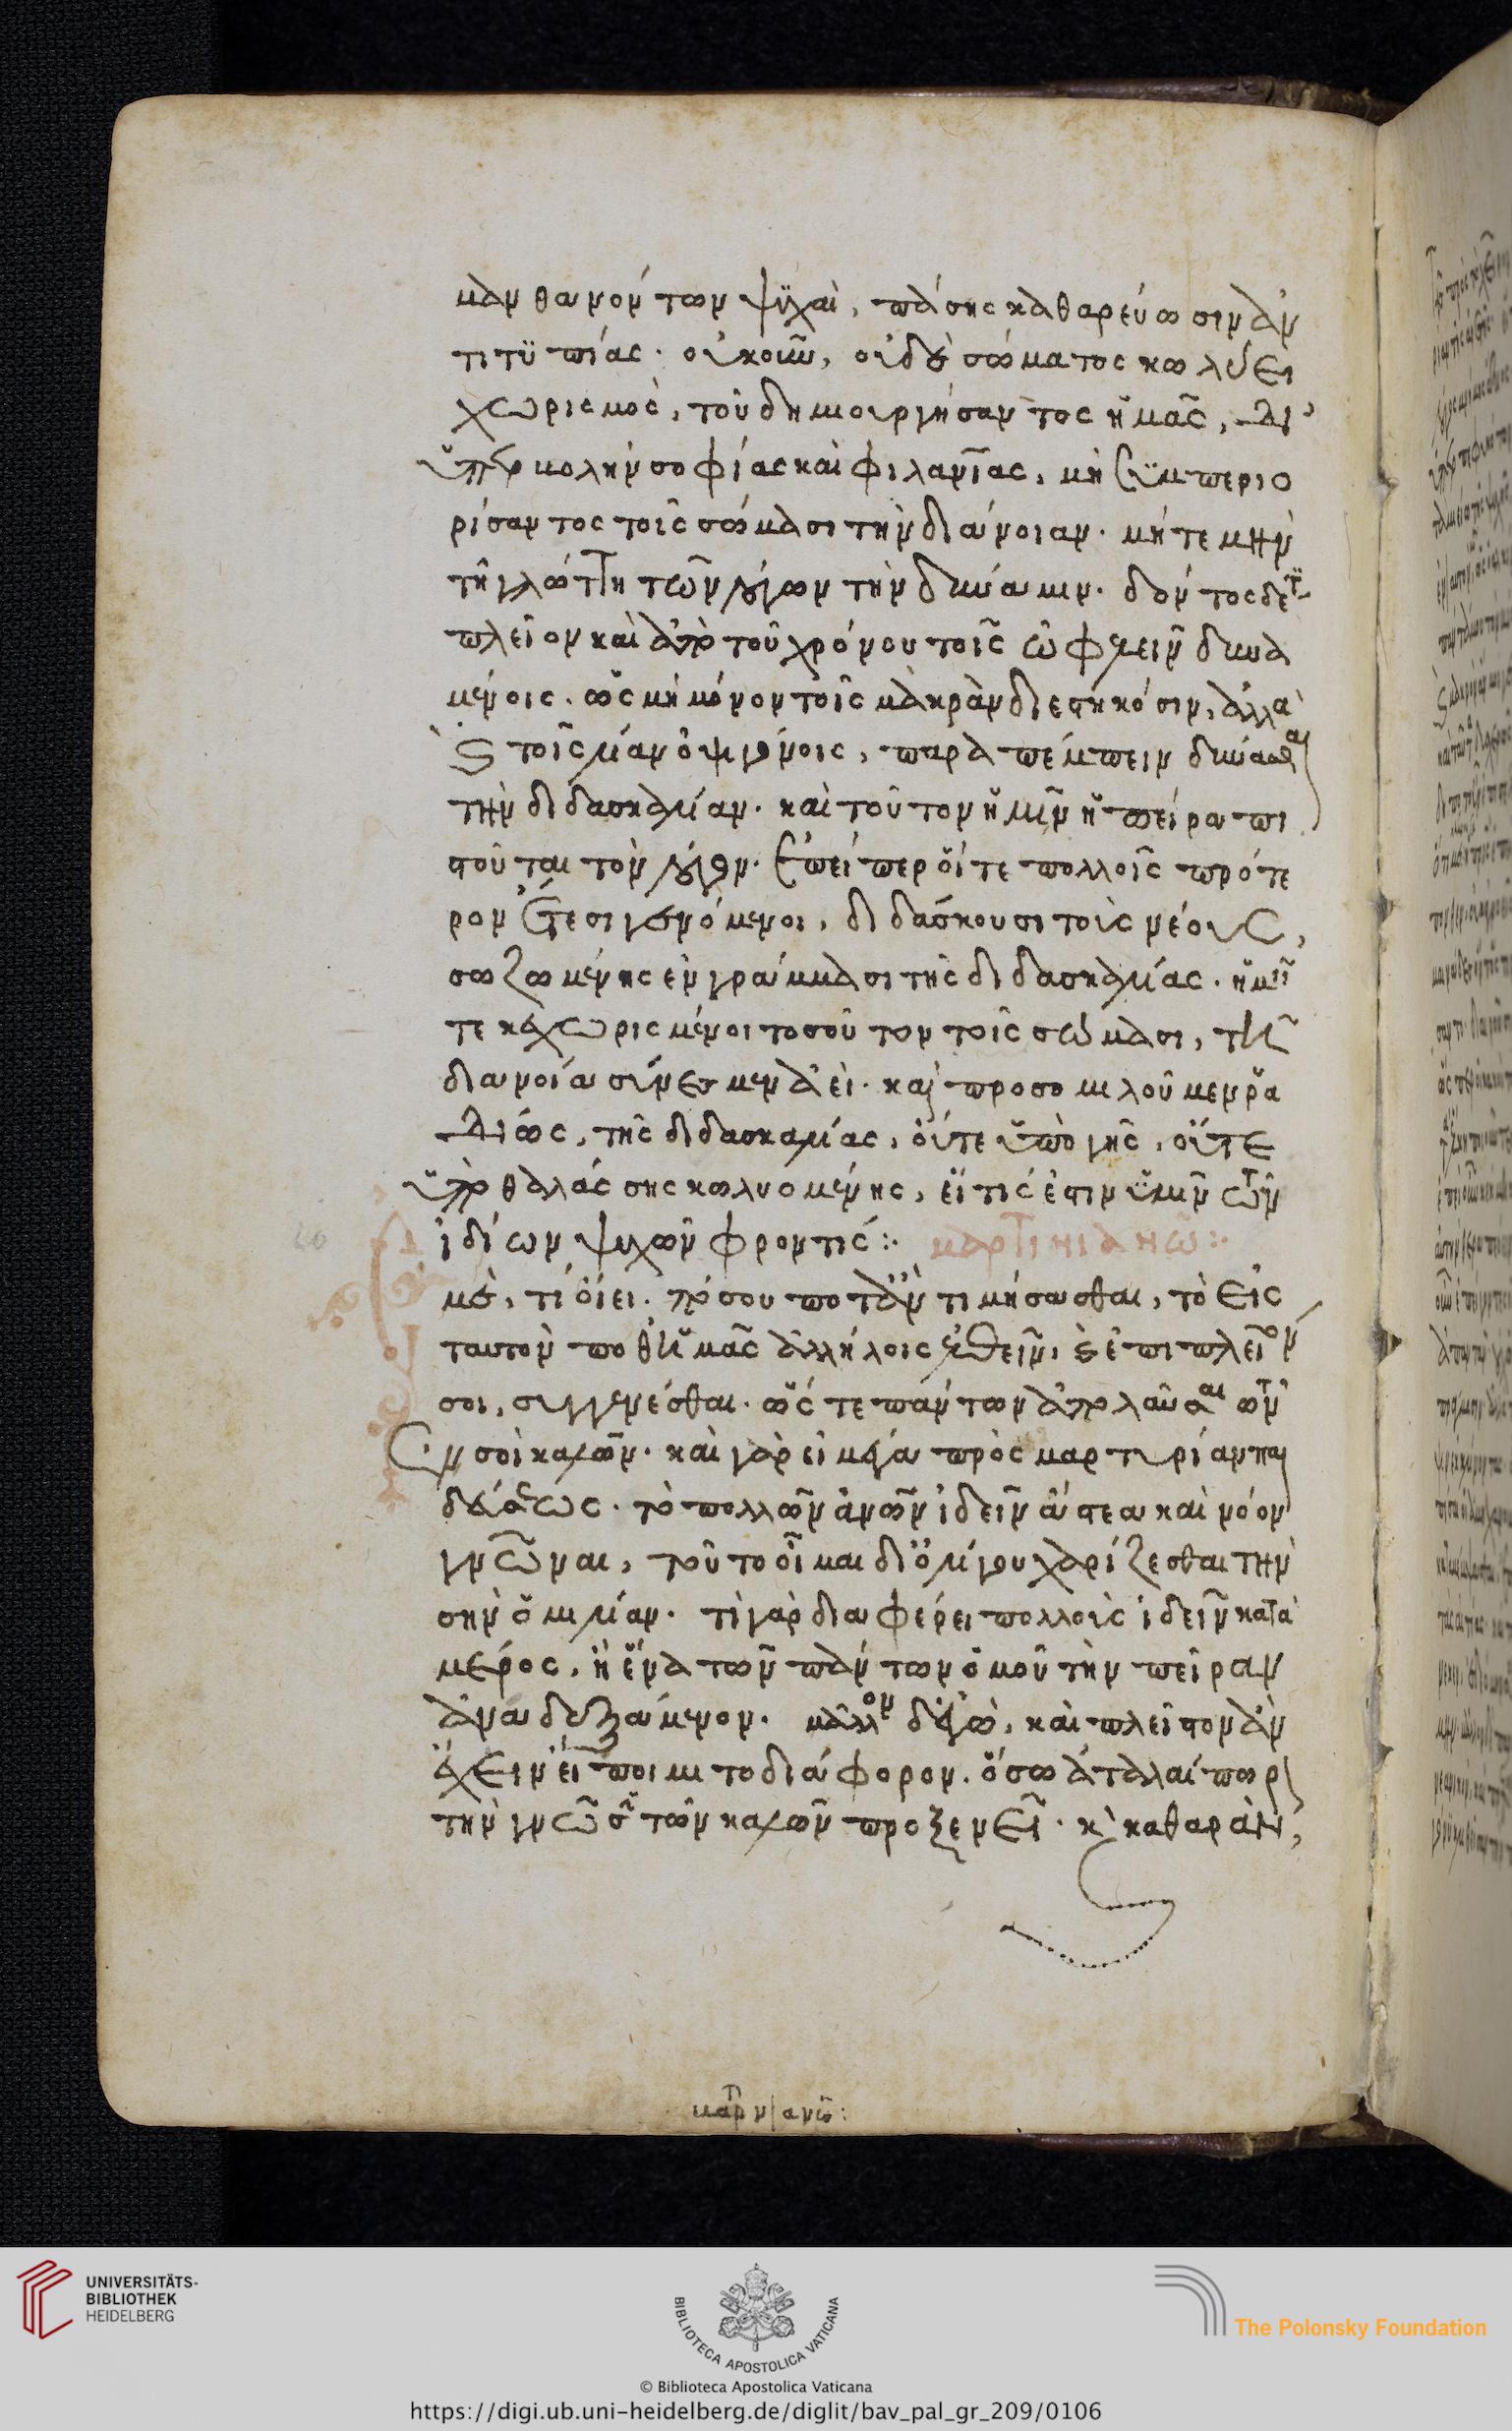 μανθανόντων ψυχαὶ, πάσης καθαρεύωσιν ἀν
τιτυπίας. οὐκοῦν, οὐδὲ σώματος κωλύει
χωρισμὸς, τοῦ δημιουργήσαντος ἡμᾶς, δι'
ὑπερβολὴν σοφίας καὶ φιλανίας, μὴ συμπεριο
ρίσαντος τοῖς σώμασι τὴν διάνοιαν. μήτε μὴν
τῆ γλώττη τῶν λόγων τὴν δύναμιν. δόντος δέ τι
πλεῖον καὶ ἀπὸ τοῦ χρόνου τοῖς ὠφελεῖν δυνα
μένοις. ὡς μὴ μόνον τοῖς μακρὰν διεστηκόσιν, ἀλλὰ
καὶ τοῖς λίαν ὀψιγόνοις, παραπέμπειν δύνασθαι
τὴν διδασκαλίαν. καὶ τοῦτον ἡμῖν ἡ πείρα πι
στοῦται τὸν λόγον. ἐπείπερ οἵ τε πολλοῖς πρότε
ρον ἔτεσι γενόμενοι, διδάσκουσι τοὺς νέους,
σωζωμένης ἐν γράμμασι τῆς διδασκαλίας. ἡμεῖς
τε κεχωρισμένοι τοσοῦτον τοῖς σώμασι, τῆ
διανοία σύνεσμεν ἀεὶ. καὶ προσομιλοῦμεν ῥα
δίως, τῆς διδασκαλίας, οὔτε ὑπὸ γῆς, οὔτε
ὑπὸ θαλάσσης κωλυομένης, εἴ τίς ἐστιν ὑμῖν τῶν
ἰδίων ψυχῶν φροντίς:· μαρτινιανῶ:·
μὲ, τί οἴει. πόσου ποτ' ἂν τιμήσασθαι, τὸ εἰς
ταυτόν ποθ' ἡμᾶς ἀλλήλοις ἐλθεῖν, καὶ ἐπιπλεῖόν
σοι, συγγενέσθαι. ὥς τε πάντων ἀπολαῦσαι τῶν
ἐν σοὶ καλῶν. καὶ γὰρ εἰ μέγα πρὸς μαρτυρίαν παι
δεύσεως. τὸ πολλῶν ἀνῶν ἰδεῖν ἄστεα καὶ νόον
γνῶναι, τοῦτο οἶμαι δι' ὀλίγου χαρίζεσθαι τὴν
σὴν ὁμιλίαν. τί γὰρ διαφέρει πολλοὺς ἰδεῖν κατὰ
μέρος, ἢ ἕνα τῶν πάντων ὁμοῦ τὴν πεῖραν
ἀναδεξάμενον. μᾶλλον δ' ἐγὼ, καὶ πλεῖστον ἂν
ἔχειν εἴποιμι το διάφορον. ὅσω ἀταλαίπωρ
τὴν γνῶσιν τῶν καλῶν προξενεῖ. κ καθαρὰν,
μαρτνιανῶ:
UNIVERSITÄTS-
BIBLIOTHEK
HEIDELBERG
BIBLIOTECA APOSTOLICA VATICANA
© Biblioteca Apostolica Vaticana
The Polonsky Foundation
https://digi.ub.uni-heidelberg.de/diglit/bav_pal_gr_209/0106